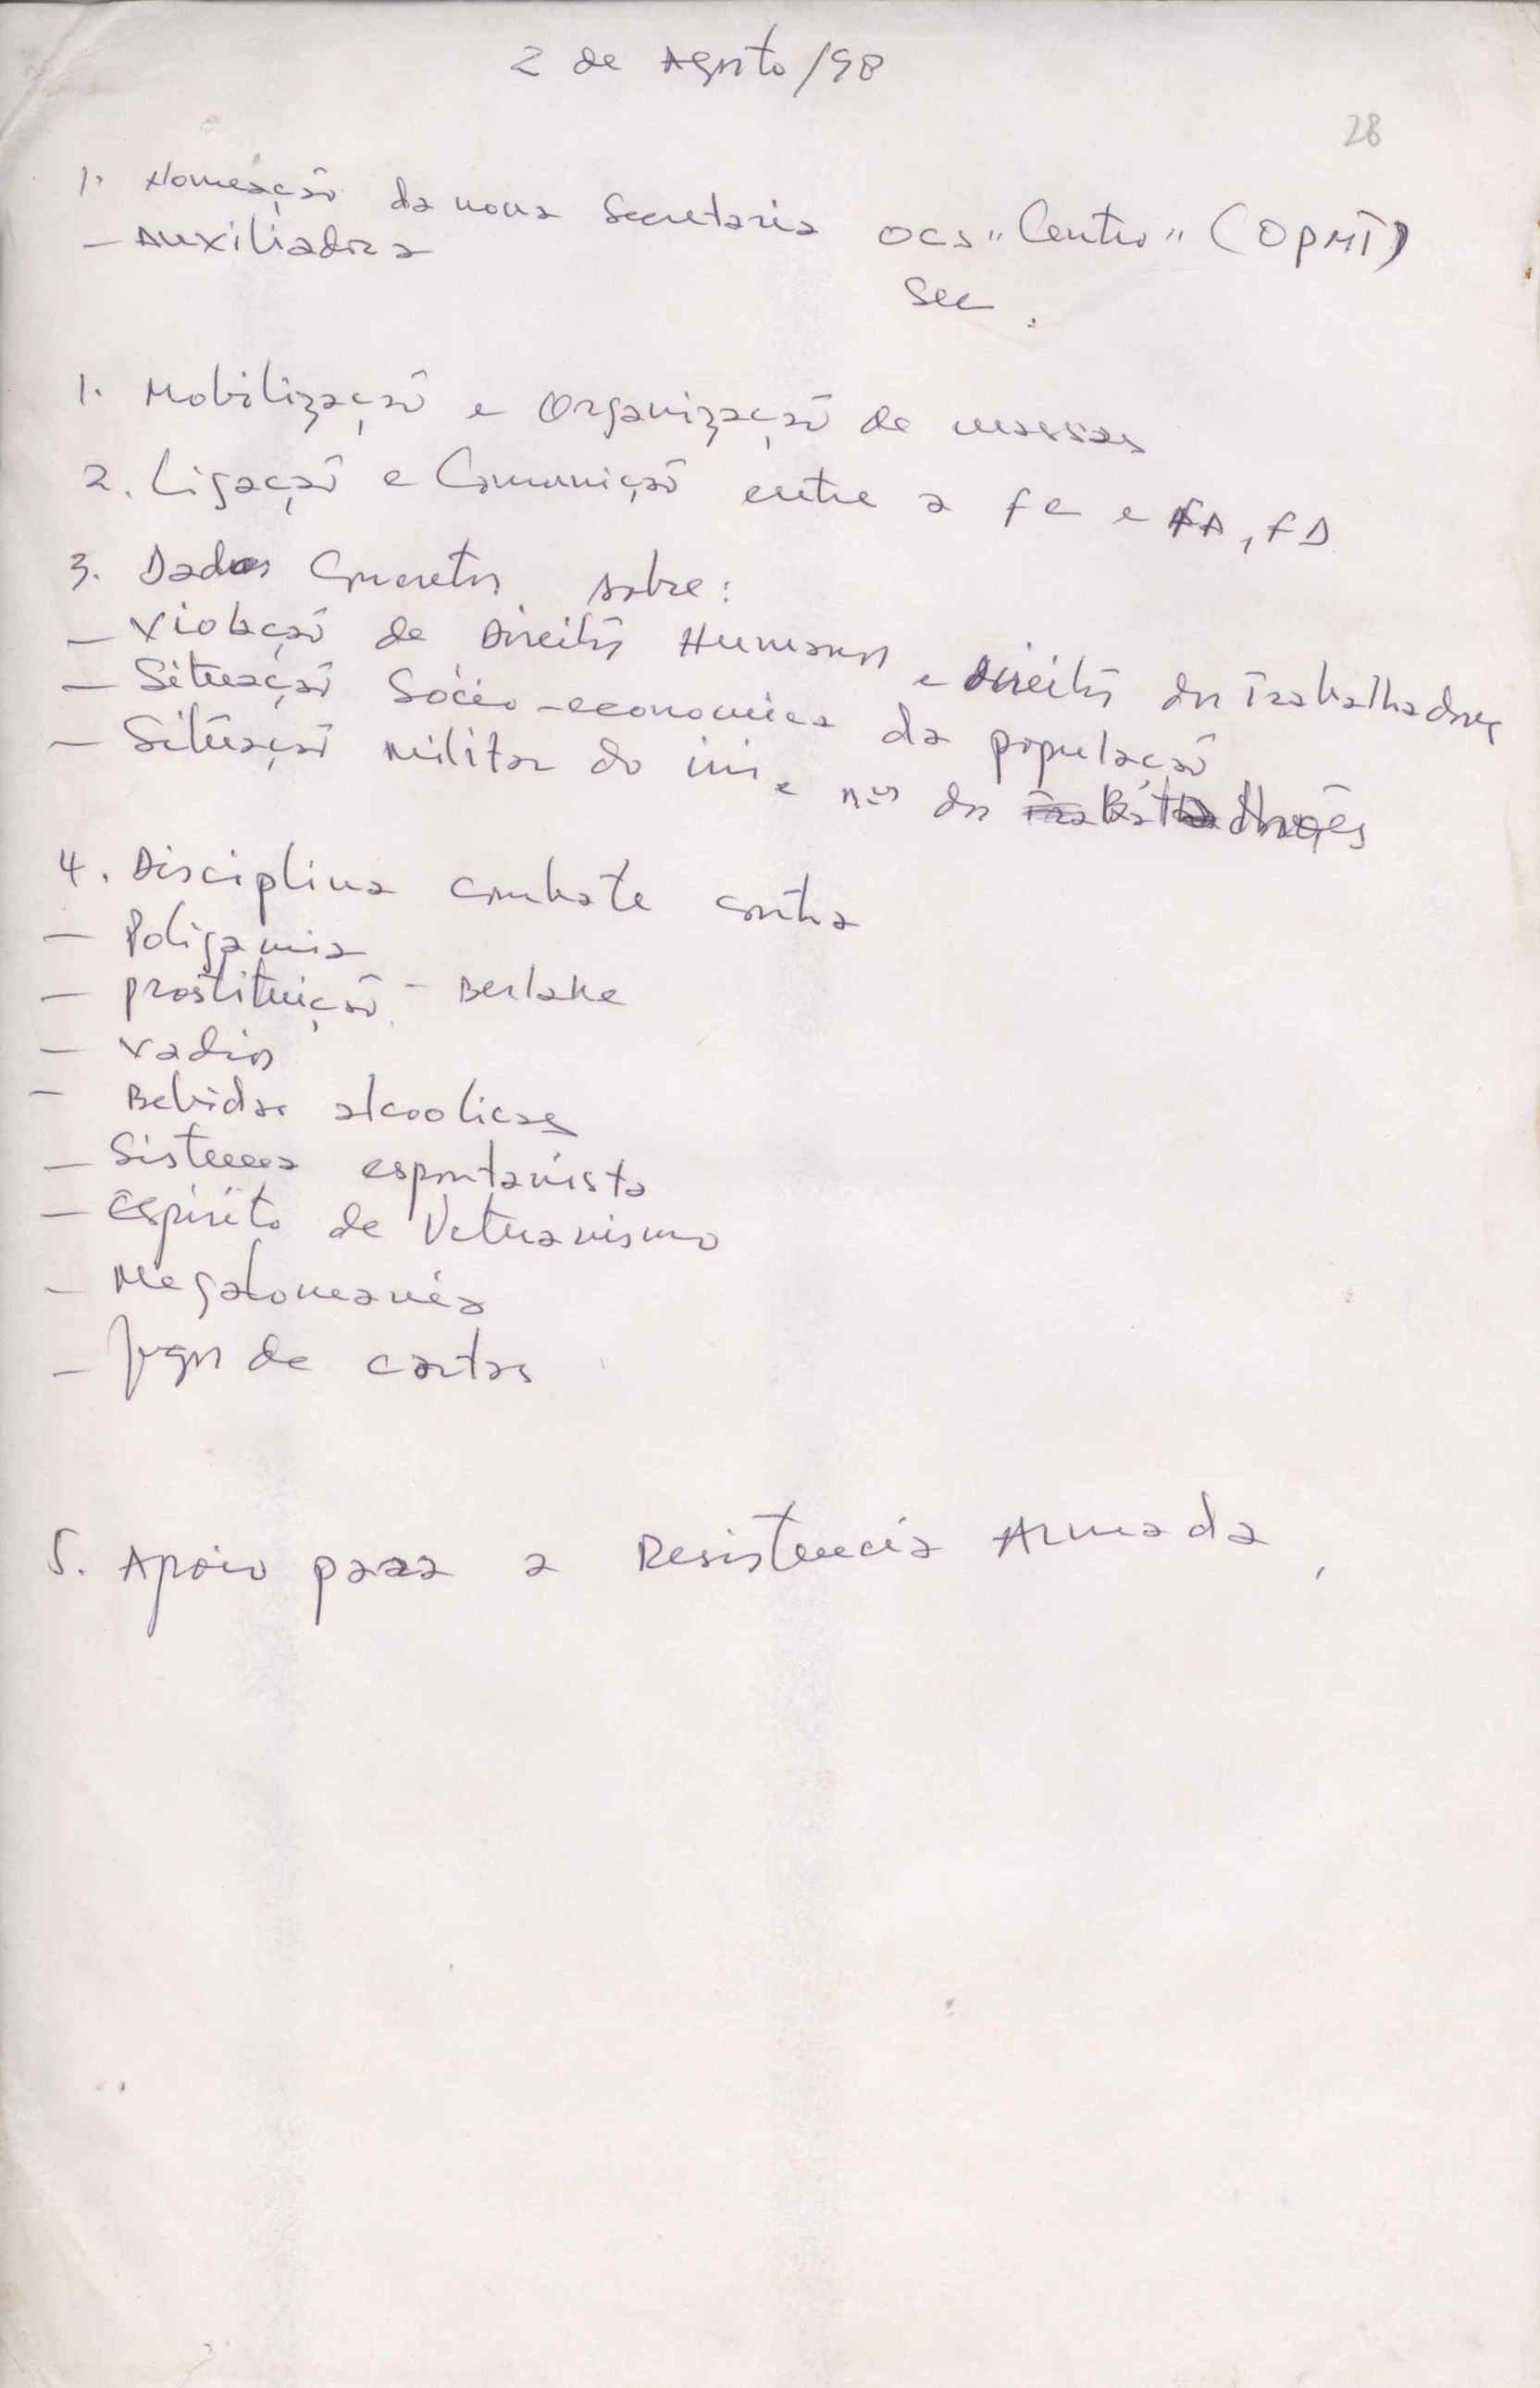 2 de Agosto/98
28
1. Nomeação da nova Secretaria OCS "Centro" (OPMT)
- Auxiliadora
Sec.
1. Mobilização e Organização de massas
2. Ligação e Comunição entre a FC e FA, FD
3. Dados Concretos sobre:
- Violação de Direitos Humanos e Direitos dos Trabalhadores
- Situação Sócio-economica da população
- Situação militar do ini e nºs dos
4. Disciplina combate contra
- Poligamia
- prostituição - Berlake
- Vadios
- Bebidas alcoolicas
- Sistema espontanista
- Espirito de Veteranismo
- Megalomania
- Jogos de cartas
5. Apoio para a Resistencia Armada,